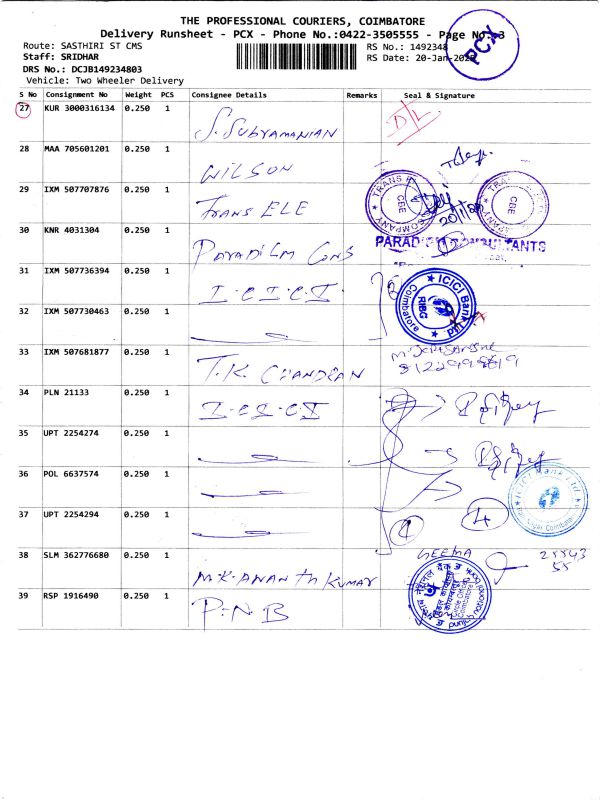 THE PROFESSIONAL COURIERS, COIMBATORE
Delivery Runsheet - PCX - Phone No.:0422-3505555 - Page No.:3
Route: SASTHIRI ST CMS
RS No.: 1492348
Staff: SRIDHAR
RS Date: 20-Jan-
DRS No.: DCJB149234803
Vehicle: Two Wheeler Delivery
PCX
S No Consignment No Weight PCS Consignee Details Remarks Seal & Signature
27 KUR 3000316134 0.250 1 S. SUBYAMANIAN D/L
28 MAA 705601201 0.250 1 WILSON
29 IXM 507707876 0.250 1 TRANS ELE
TRANS COMPANY CBE
CBE
30 KNR 4031304 0.250 1 PARADILM CONS
31 IXM 507736394 0.250 1 I-C-I-C-I
ICICI Bank
RIBG
Coimbatore
32 IXM 507730463 0.250 1
33 IXM 507681877 0.250 1 T.K. CHANDRAN
34 PLN 21133 0.250 1 I-C-I-C-I
35 UPT 2254274 0.250 1
36 POL 6637574 0.250 1
ICICI Bank Ltd
37 UPT 2254294 0.250 1 4
38 SLM 362776680 0.250 1 M.K. ANANTH KUMAR
39 RSP 1916490 0.250 1 P-N-B
punjab national bank